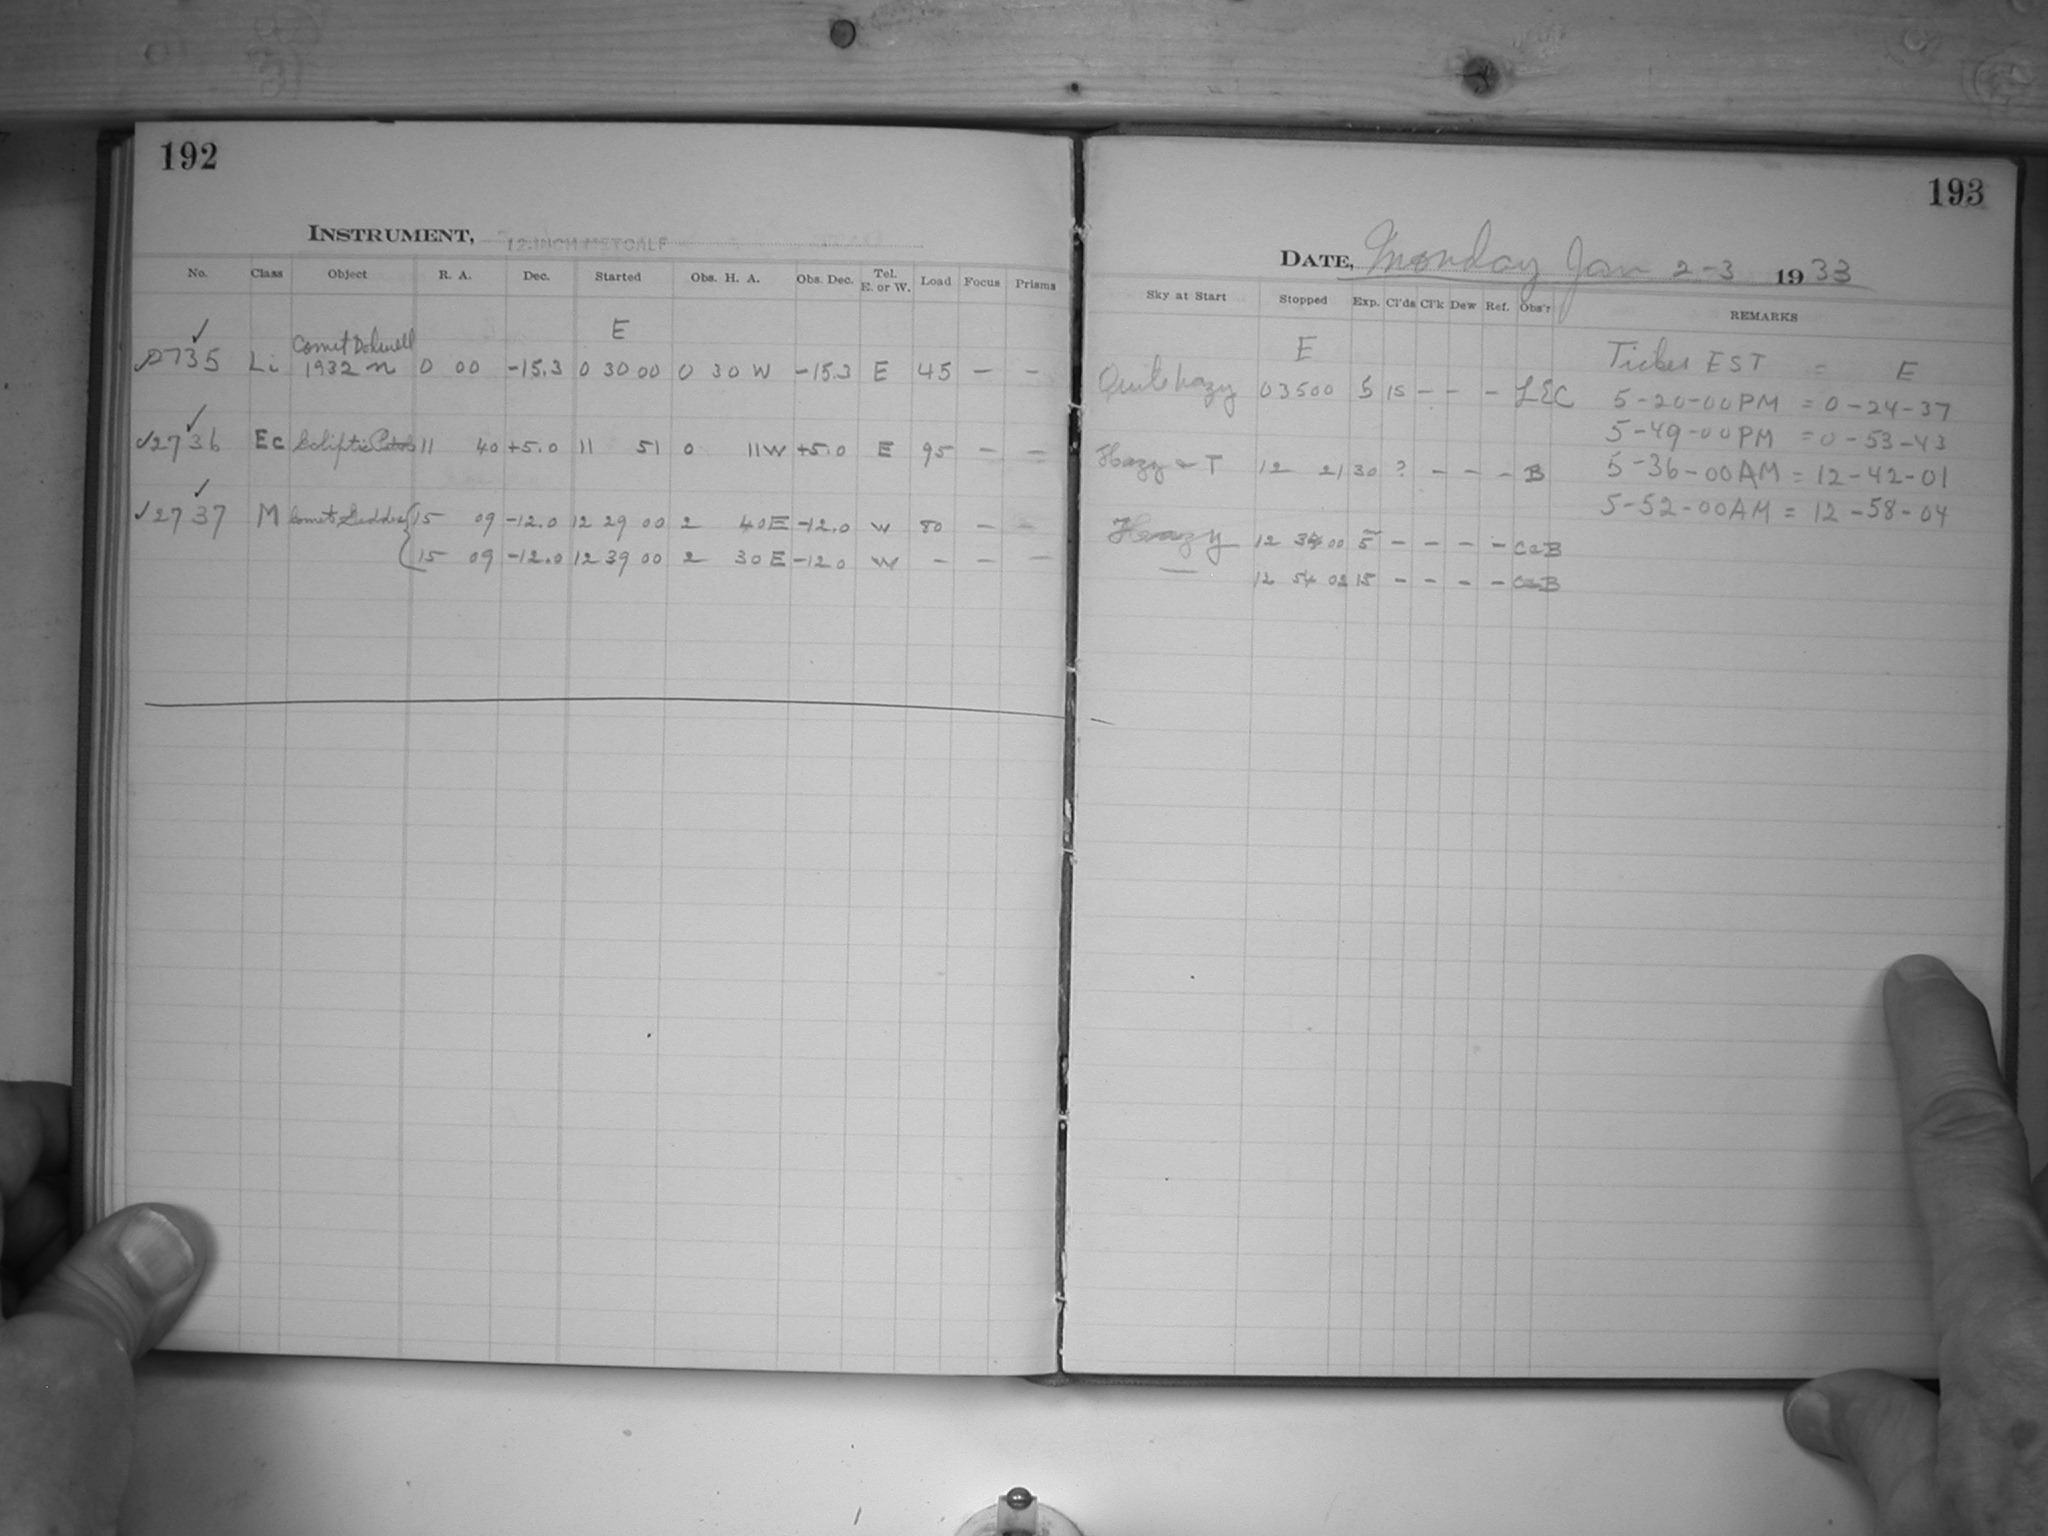 192
INSTRUMENT, 12-INCH METCALF
No. Class Object R. A. Dec. Started Obs. H. A. Obs. Dec. Tel. E. or W. Load Focus Prisms
E
✓ Comet Dodwell
2735 Li 1932 n 0 00 -15.3 0 30 00 0 30 W -15.3 E 45 - -
✓
✓2736 Ec Ecliptic Patrol 11 40 +5.0 11 51 0 11W +5.0 E 95 - -
✓
✓2737 M Comet Geddes 15 09 -12.0 12 29 00 2 40E -12.0 W 80 - -
15 09 -12.0 12 39 00 2 30E -12.0 W - - -
193
DATE, Monday Jan 2-3 1933
Sky at Start Stopped Exp. Cl'ds Cl'k Dew Ref. Obs'r REMARKS
E
Quite hazy 0 35 00 5 15 - - - LEC
Hazy & T 12 21 30 ? - - - B
Hazy 12 34 00 5 - - - - CaB
— 12 54 02 15 - - - - CaB
EST = E
5-20-00PM = 0-24-37
5-49-00PM = 0-53-43
5-36-00AM = 12-42-01
5-52-00AM = 12-58-04